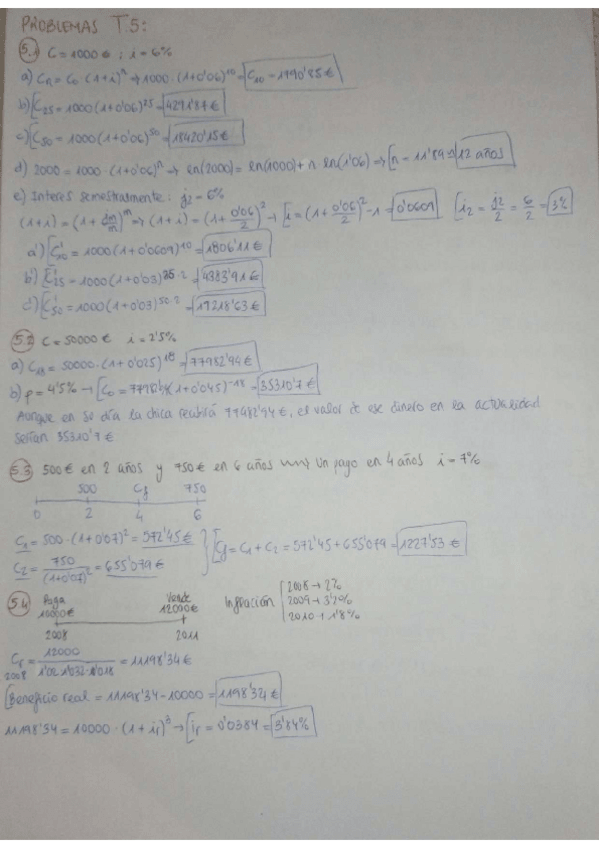 PROBLEMAS T.5:
5.1 C = 1000 € ; i = 6%
a) Cn = C0 · (1+i)^n → 1000 · (1+0'06)^10 = C10 = 1790'85 €
b) [C25 = 1000(1+0'06)^25 = 4291'87 €
c) [C50 = 1000(1+0'06)^50 = 18420'15 €
d) 2000 = 1000 · (1+0'06)^n ⇒ ln(2000) = ln(1000) + n ln(1'06) ⇒ [n = 11'89 ≈ 12 años
e) Interes semestralmente: j2 = 6%
(1+i) = (1 + jm/m)^m ⇒ (1+i) = (1 + 0'06/2)^2 → [i = (1 + 0'06/2)^2 - 1 = 0'0609 [i2 = j2/2 = 6/2 = 3%
a') [C'10 = 1000(1+0'0609)^10 = 1806'11 €
b') [C'25 = 1000(1+0'03)^25·2 = 4383'91 €
c') [C'50 = 1000(1+0'03)^50·2 = 19218'63 €
5.2 C = 50000 € i = 2'5%
a) C18 = 50000 · (1+0'025)^18 = 77982'94 €
b) p = 4'5% → [C0 = (1+0'045)^-18 = 35310'7 €
Aunque en su día la chica recibirá 77982'94 €, el valor de ese dinero en la actualidad
serían 35310'7 €
5.3 500 € en 2 años y 750 € en 6 años Un pago en 4 años i = 7%
500 Cf 750
0 2 4 6
C1 = 500 · (1+0'07)^2 = 572'45 €
C2 = 750/(1+0'07)^2 = 655'079 €
[Cf = C1 + C2 = 572'45 + 655'079 = 1227'53 €
5.4 Paga 10000 € Vende 12000 €
2008 2011
Inflación 2008 → 2%
2009 → 3'2%
2010 → 1'8%
Cr 2008 = 12000/1'02·1'032·1'018 = 11198'34 €
[Beneficio real = 11198'34 - 10000 = 1198'34 €
11198'34 = 10000 · (1 + ir)^3 → [ir = 0'0384 = 3'84%